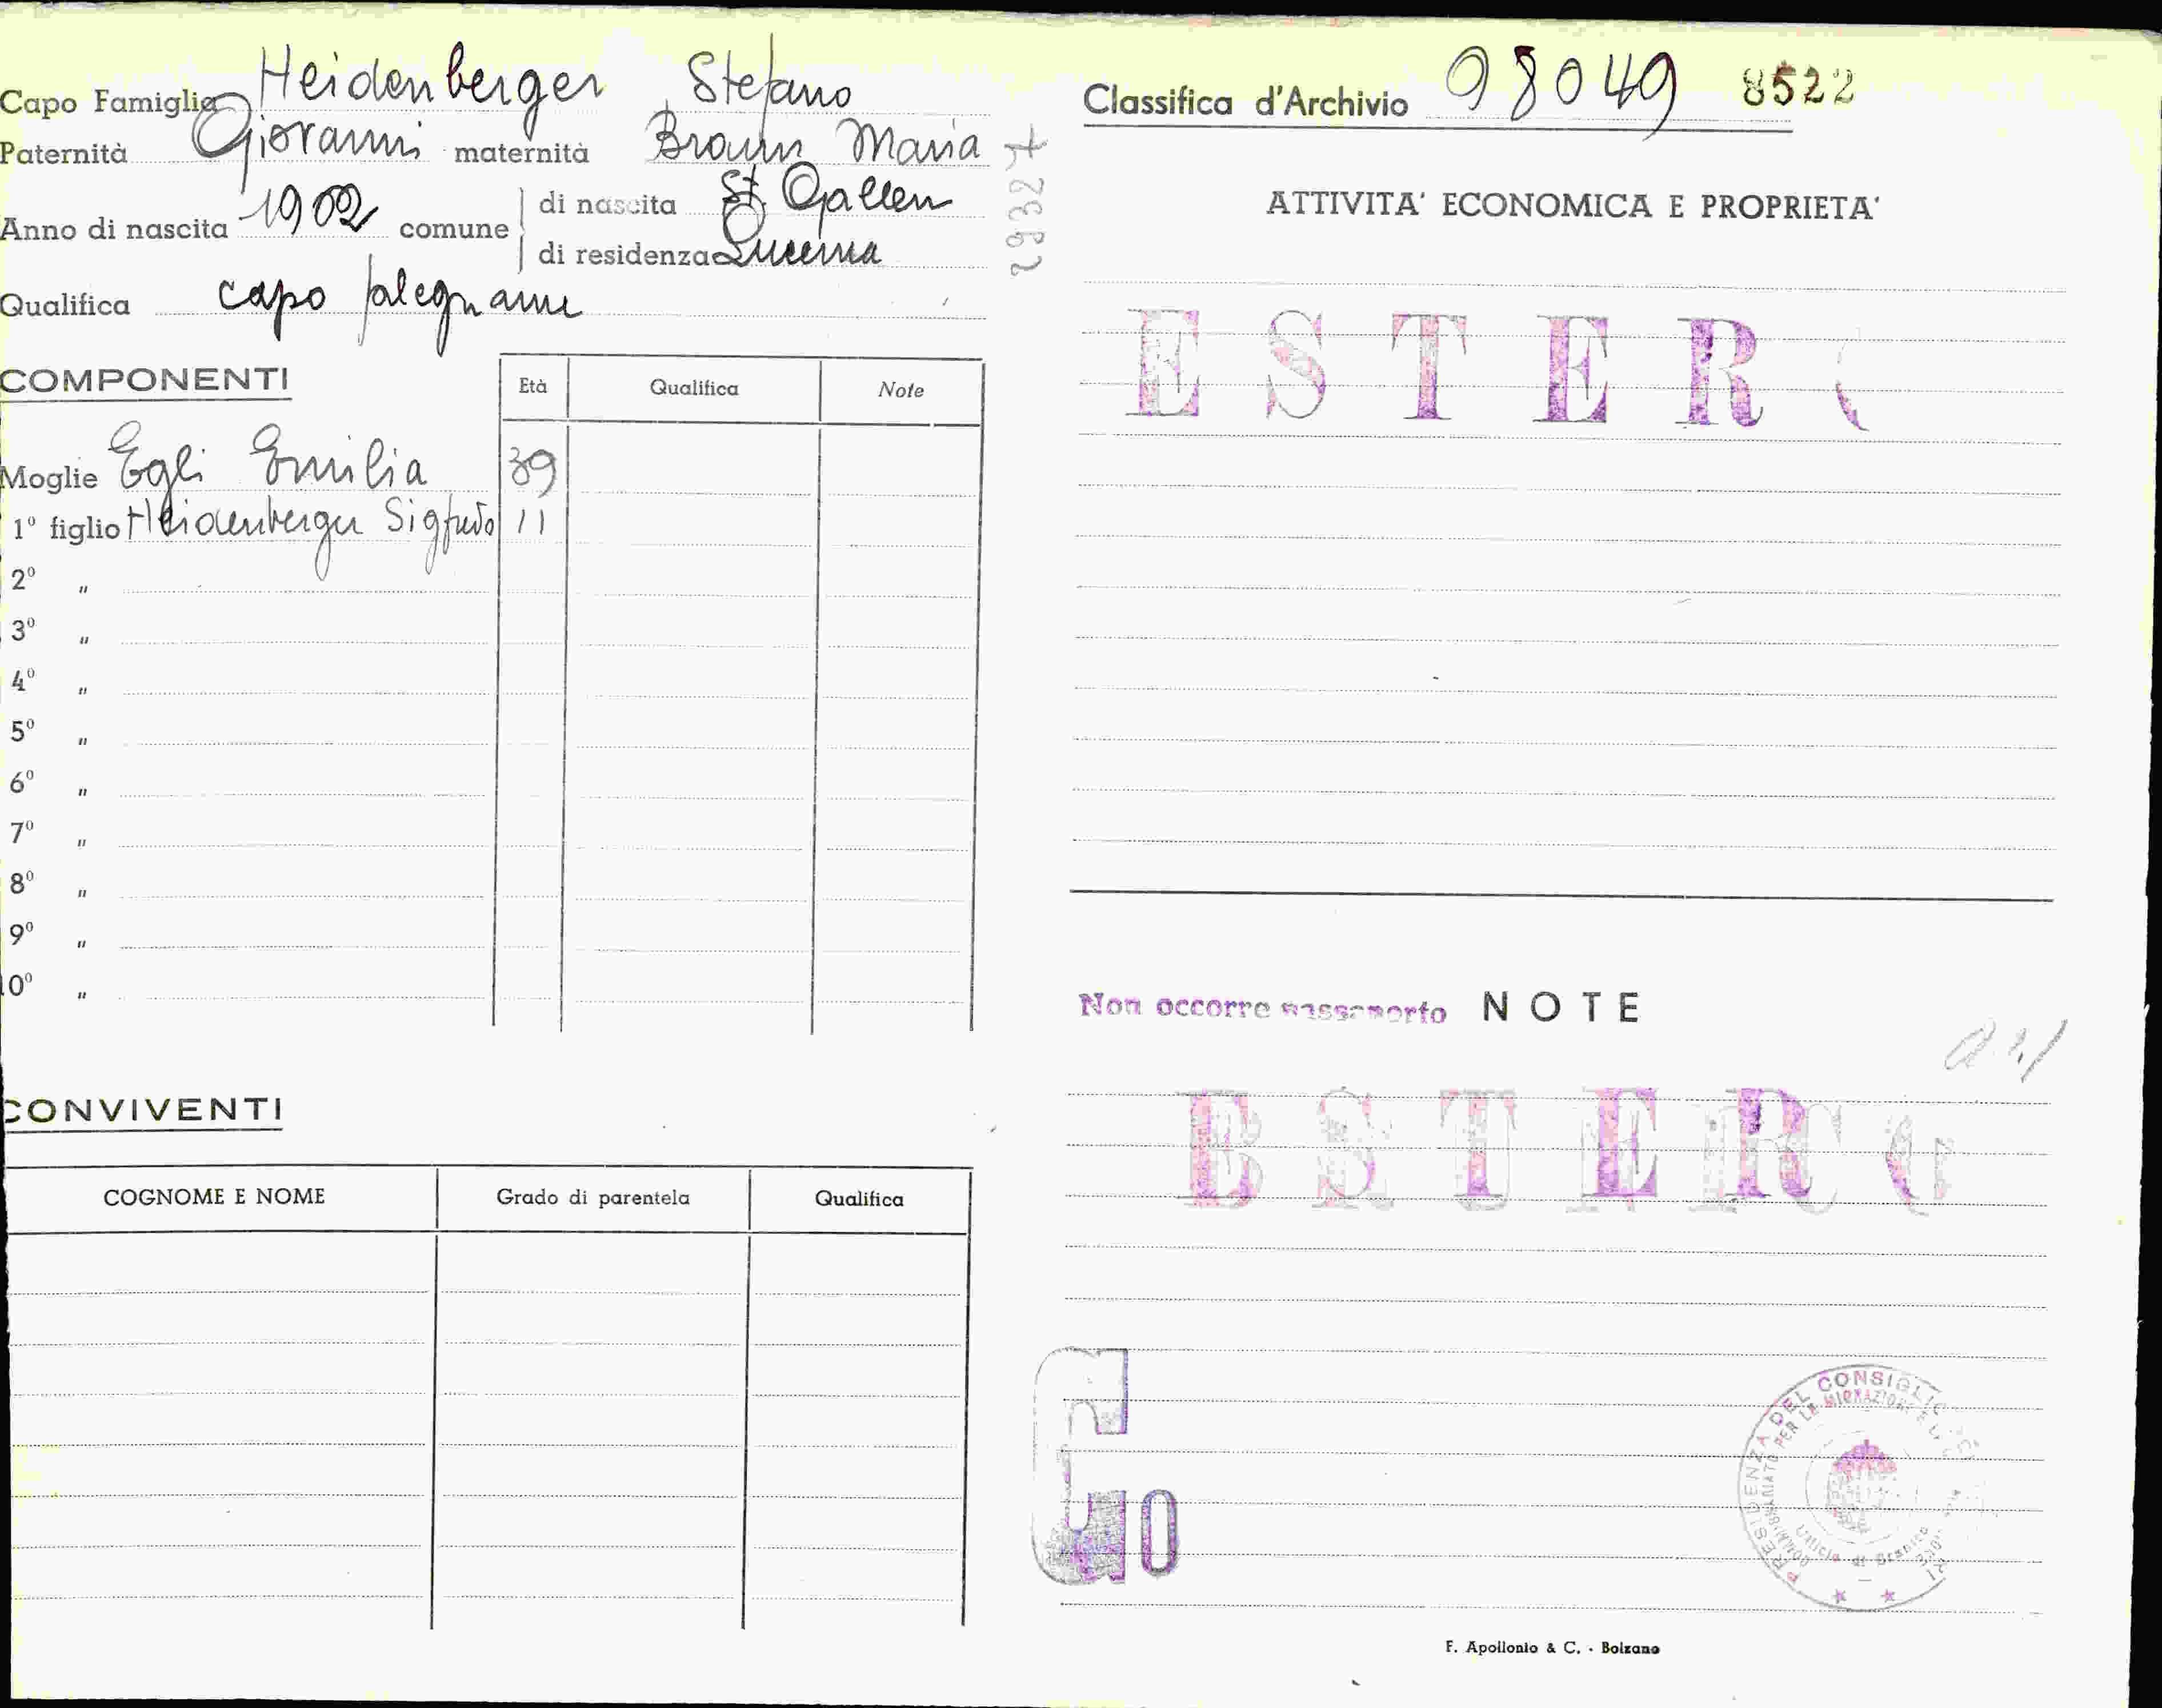 Capo Famiglia Heidenberger Stefano
Paternità Giovanni maternità Braun Maria
Anno di nascita 1902 comune di nascita St. Gallen
di residenza Lucerna
Qualifica capo falegname
COMPONENTI
Età Qualifica Note
Moglie Egli Emilia 39
1º figlio Heidenberger Sigfrido 11
2º "
3º "
4º "
5º "
6º "
7º "
8º "
9º "
10º "
CONVIVENTI
COGNOME E NOME Grado di parentela Qualifica
Classifica d'Archivio 98049 8522
ATTIVITA' ECONOMICA E PROPRIETA'
ESTERO
Non occorre passaporto NOTE
ESTERO
PRESIDENZA DEL CONSIGLIO
PER LE MIGRAZIONI E
Ufficio di
F. Apollonio & C. - Bolzano